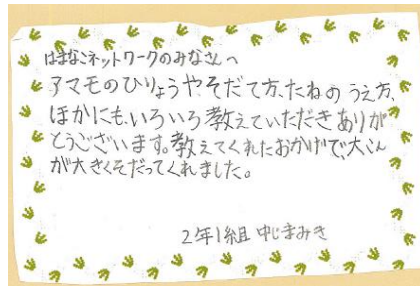 はまなこネットワークのみなさんへ
アマモのひりょうやそだて方、たねのうえ方、
ほかにも、いろいろ教えていただきありが
とうございます。教えてくれたおかげで、大こん
が大きくそだってくれました。
2年1組 中じまみき